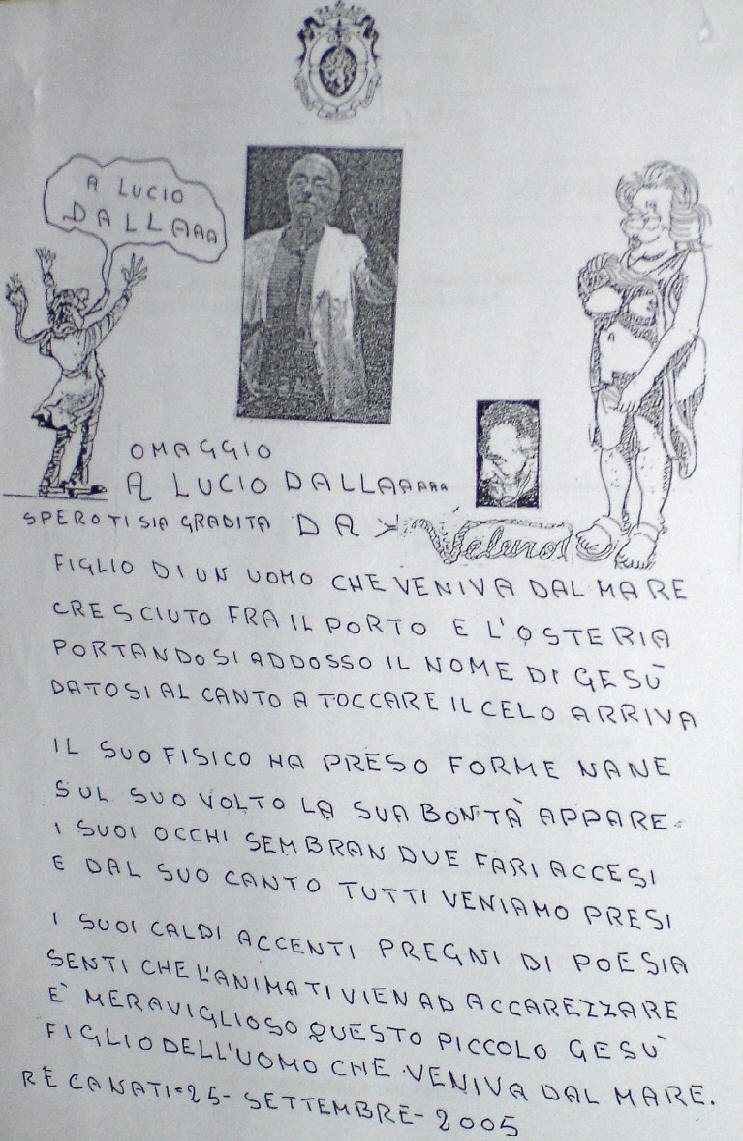 A LUCIO
DALLAAA
OMAGGIO
A LUCIO DALLAAAAA
SPERO TI SIA GRADITA DA
FIGLIO DI UN UOMO CHE VENIVA DAL MARE
CRESCIUTO FRA IL PORTO E L'OSTERIA
PORTANDOSI ADDOSSO IL NOME DI GESÙ
DATOSI AL CANTO A TOCCARE IL CELO ARRIVA
IL SUO FISICO HA PRESO FORME NANE
SUL SUO VOLTO LA SUA BONTÀ APPARE.
I SUOI OCCHI SEMBRAN DUE FARI ACCESI
E DAL SUO CANTO TUTTI VENIAMO PRESI
I SUOI CALDI ACCENTI PREGNI DI POESIA
SENTI CHE L'ANIMA TI VIEN AD ACCAREZZARE
E' MERAVIGLIOSO QUESTO PICCOLO GESU'
FIGLIO DELL'UOMO CHE VENIVA DAL MARE.
RECANATI=25-SETTEMBRE-2005